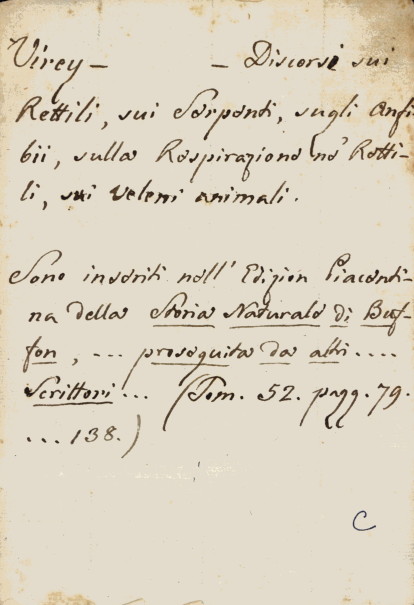 Virey – – Discorsi sui
Rettili, sui Serpenti, sugli Anfi-
bii, sulla Respirazione ne' Retti-
li, sui veleni animali.
Sono inseriti nell' Edizion Piacenti-
na della Storia Naturale di Buf-
fon, ... proseguita da altri ....
Scrittori ... (Tom. 52. pagg. 79.
... 138.)
C